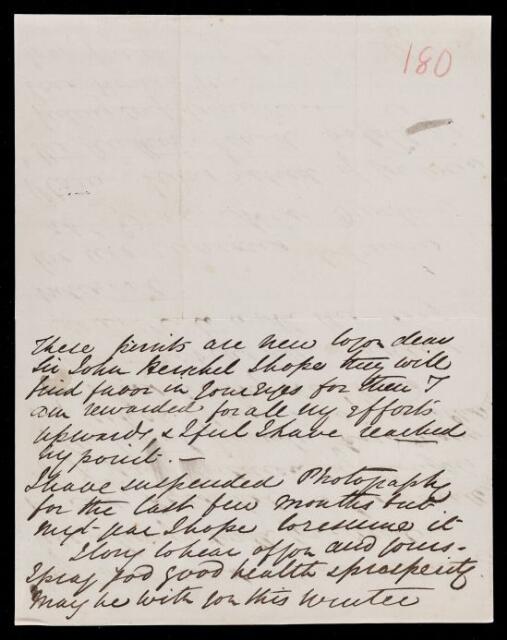 180
These prints are new to you dear
Sir John Herschel I hope they will
find favor in your eyes for then I
am rewarded for all my efforts
upwards & I feel I have reached
my point. —
I have suspended Photography
for the last few months but
next year I hope to resume it
I long to hear of you and yours -
I pray God good health & prosperity
may be with you this winter